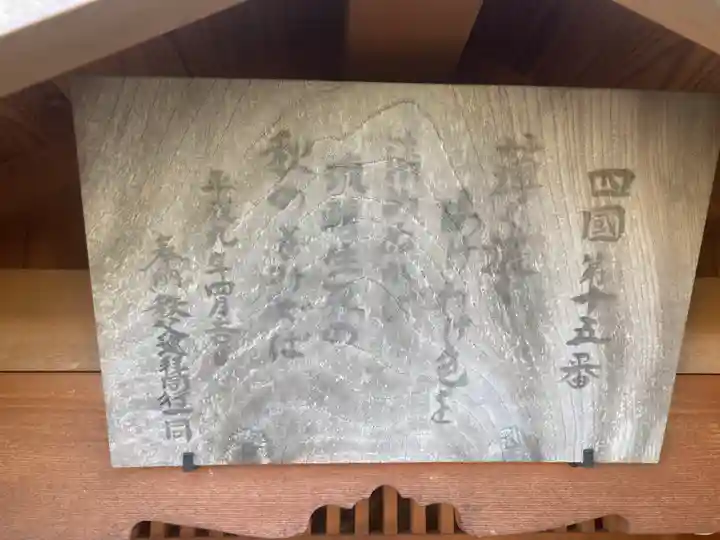 四國第十五番
薄く濃く
わけわけ色を
染めぬれば
流転生死の
秋のもみぢば
平成九年四月
奉納 一同